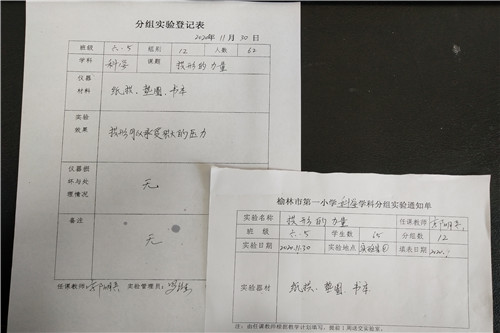 分组实验登记表
2020年11月30日
班级 六.5 组别 12 人数 62
学科 科学 课题 拱形的力量
仪器材料 纸板、垫圈、书本
实验效果 拱形可以承受很大的压力
仪器损坏与处理情况 无
备注 无
任课教师: 实验管理员:
榆林市第一小学科学学科分组实验通知单
实验名称 拱形的力量 任课教师
班级 六.5 学生数 65 分组数 12
实验日期 2020.11.30 实验地点 填表日期 2020.
实验器材 纸板、垫圈、书本
注:由任课教师根据教学计划填写,提前1周送交实验室。